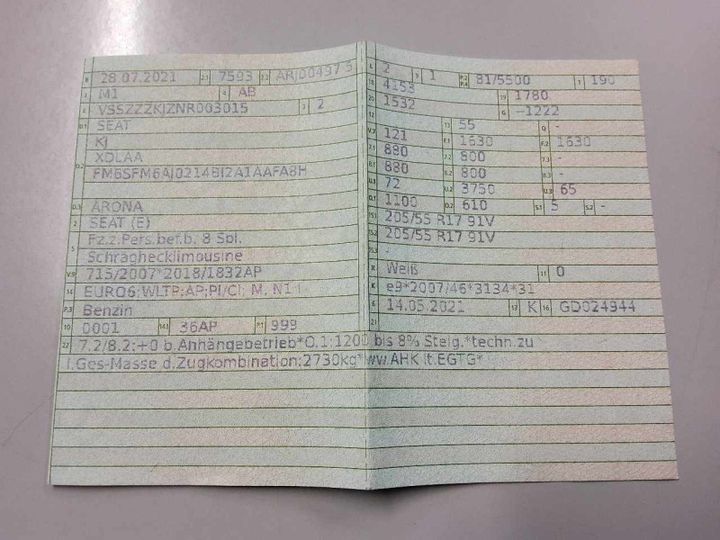 B 28.07.2021 2.1 7593 2.2 ARJ00497 5
J M1 4 AB
E VSSZZZKJZNR003015 3 2
D.1 SEAT
KJ
D.2 XDLAA
FM6SFM6AJ0214BI2A1AAFA8H
D.3 ARONA
2 SEAT (E)
5 Fz.z.Pers.bef.b. 8 Spl.
Schräghecklimousine
V.9 715/2007*2018/1832AP
14 EURO6;WLTP;AP;PI/CI; M, N1 I
P.3 Benzin
10 0001 14.1 36AP P.1 999
L 2 9 1 P.2 P.4 81/5500 T 190
18 4153
19 1780
20 1532 G -1222
12
13 55 Q -
V.7 121 F.1 1630 F.2 1630
7.1 880 7.2 800 7.3 -
8.1 880 8.2 800 8.3 -
U.1 72 U.2 3750 U.3 65
O.1 1100 O.2 610 S.1 5 S.2 -
15.1 205/55 R17 91V
15.2 205/55 R17 91V
15.3 -
R Weiß 11 0
K e9*2007/46*3134*31
6 14.05.2021 17 K 16 GD024944
21
22 7.2/8.2:+0 b.Anhängebetrieb*O.1:1200 bis 8% Steig.*techn.zu
l.Ges-Masse d.Zugkombination:2730kg*ww.AHK lt.EGTG*